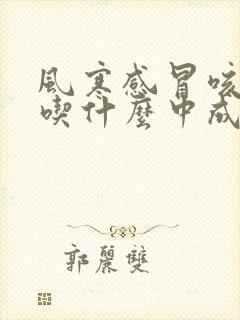 風寒感冒咳
喫什麼中成
郭麗雙